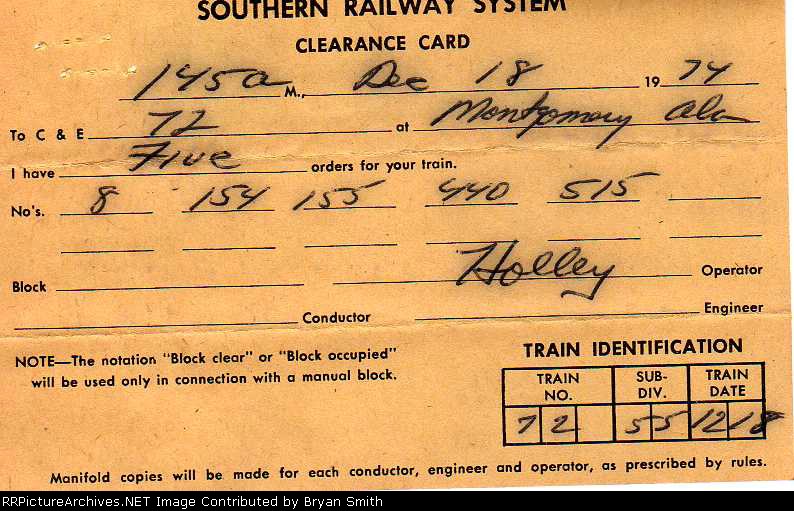 SOUTHERN RAILWAY SYSTEM
CLEARANCE CARD
145a M., Dec 18 1974
To C & E 72 at Montgomery Ala
I have Five orders for your train.
No's. 8 154 155 440 515
Block Holley Operator
Conductor Engineer
NOTE—The notation "Block clear" or "Block occupied"
will be used only in connection with a manual block.
TRAIN IDENTIFICATION
TRAIN NO. SUB-DIV. TRAIN DATE
7 2 5 5 12 18
Manifold copies will be made for each conductor, engineer and operator, as prescribed by rules.
RailPictureArchives.NET Image Contributed by Bryan Smith